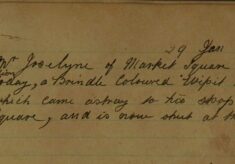 29 Jan
Mr Jocelyne of Market Square
today, a Brindle Coloured Wipit
which came astray to his shop
Square, and is now shut at h